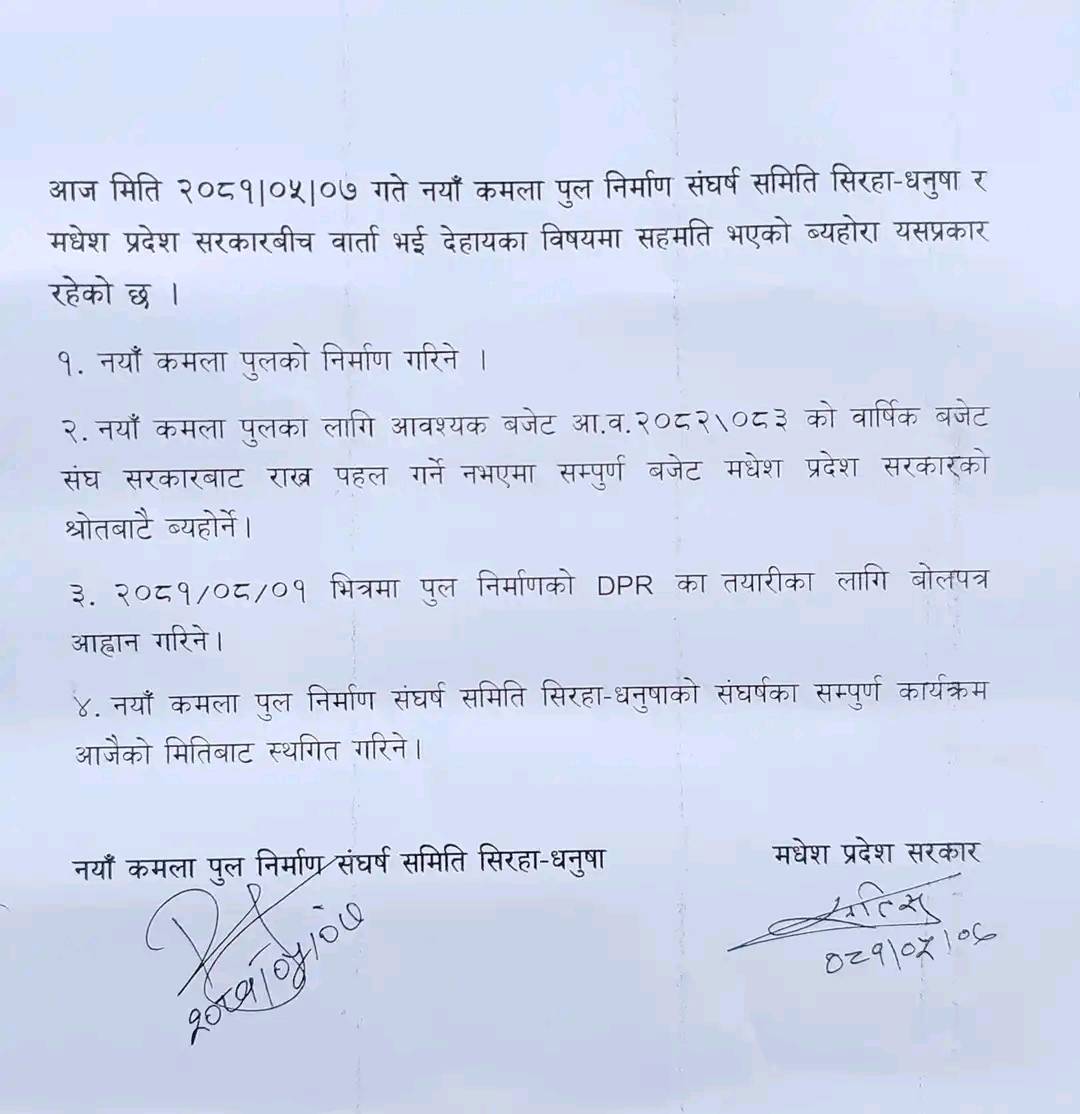 आज मिति २०८१|०५|०७ गते नयाँ कमला पुल निर्माण संघर्ष समिति सिरहा-धनुषा र
मधेश प्रदेश सरकारबीच वार्ता भई देहायका विषयमा सहमति भएको ब्यहोरा यसप्रकार
रहेको छ ।
१. नयाँ कमला पुलको निर्माण गरिने ।
२. नयाँ कमला पुलका लागि आवश्यक बजेट आ.व.२०८२\०८३ को वार्षिक बजेट
संघ सरकारबाट राख्न पहल गर्ने नभएमा सम्पुर्ण बजेट मधेश प्रदेश सरकारको
श्रोतबाटै ब्यहोर्ने।
३. २०८१/०८/०१ भित्रमा पुल निर्माणको DPR का तयारीका लागि बोलपत्र
आह्वान गरिने।
४. नयाँ कमला पुल निर्माण संघर्ष समिति सिरहा-धनुषाको संघर्षका सम्पुर्ण कार्यक्रम
आजैको मितिबाट स्थगित गरिने।
नयाँ कमला पुल निर्माण संघर्ष समिति सिरहा-धनुषा
मधेश प्रदेश सरकार
२०८१|०५|०७